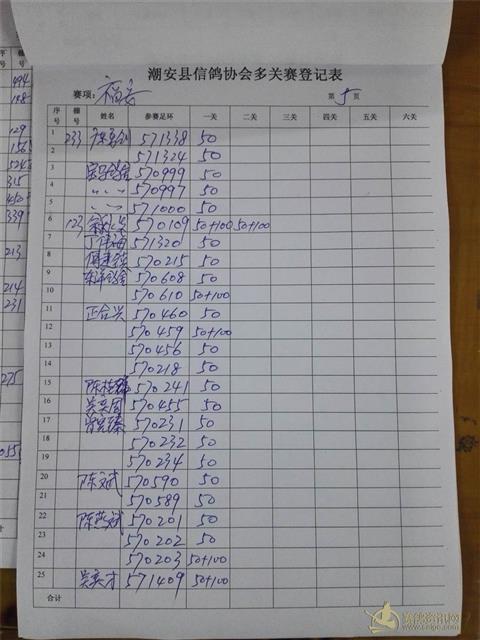 潮安县信鸽协会多关赛登记表
赛项: 福安 第 5 页
序号 棚号 姓名 参赛足环 一关 二关 三关 四关 五关 六关
1 233 571338 50
2 571324 50
3 570999 50
4 570997 50
5 571000 50
6 123 570109 50+100 50+100
7 571320 50
8 570215 50
9 570608 50
10 570610 50+100
11 正合兴 570460 50
12 570459 50+100
13 570456 50
14 570218 50
15 570241 50
16 570455 50
17 570231 50
18 570232 50
19 570234 50
20 陈文斌 570590 50
21 570589 50
22 陈燕斌 570201 50
23 570202 50
24 570203 50+100
25 吴英才 571409 50+100
合计
494
148
129
156
524
315
450
339
213
214
231
275
赛鸽资讯网
www.saige.com